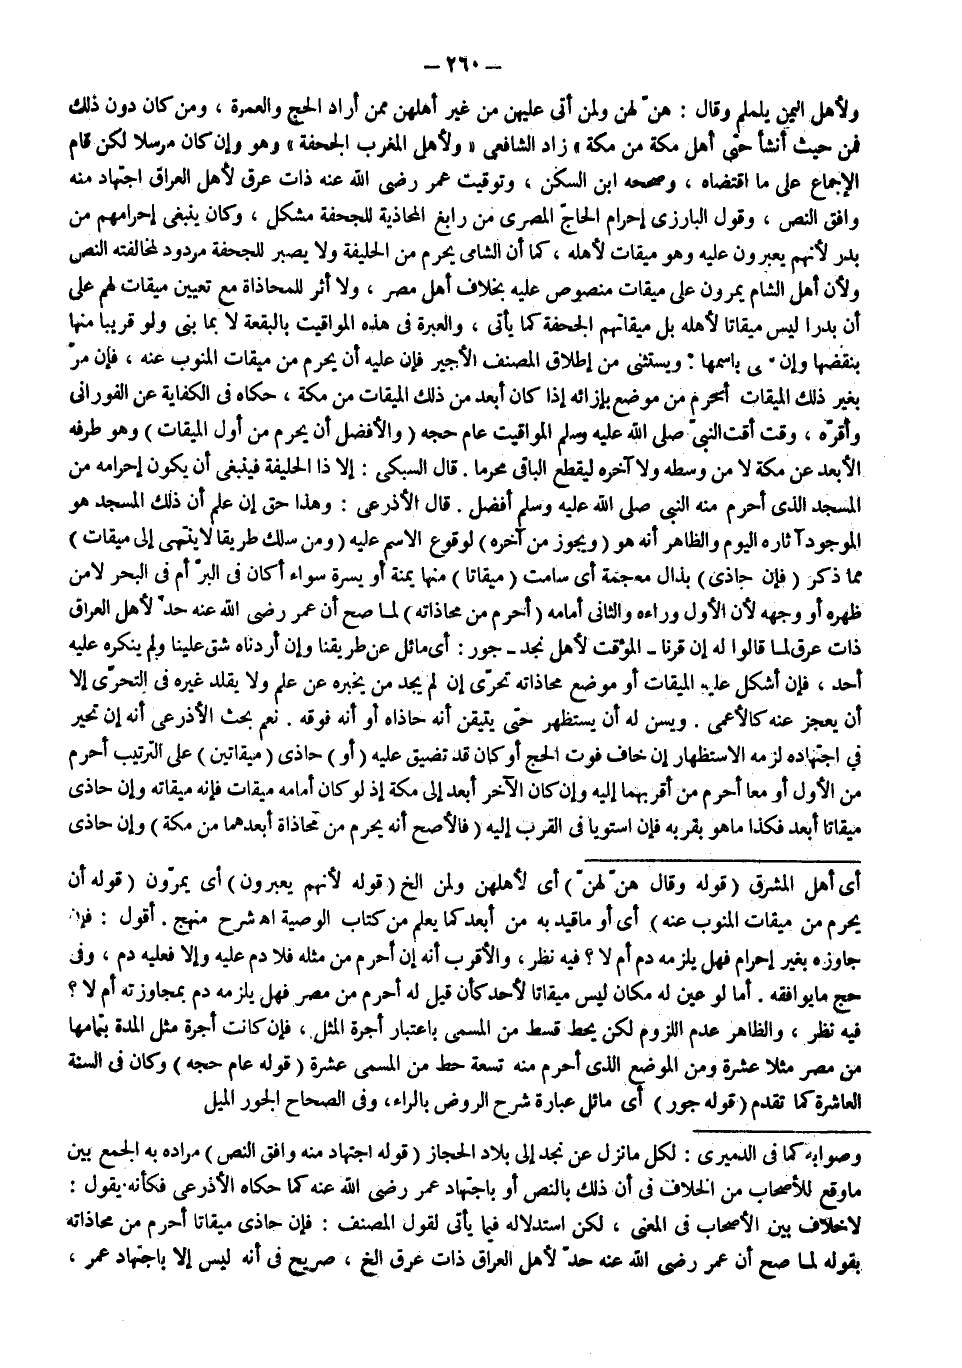 — ٢٦٠ —
ولأهل اليمن يلملم وقال : هنّ لهن ولمن أتى عليهن من غير أهلهن ممن أراد الحج والعمرة ، ومن كان دون ذلك
فمن حيث أنشأ حتى أهل مكة من مكة » زاد الشافعى « ولأهل المغرب الجحفة » وهو وإن كان مرسلا لكن قام
الإجماع على ما اقتضاه ، وصححه ابن السكن ، وتوقيت عمر رضى الله عنه ذات عرق لأهل العراق اجتهاد منه
وافق النص ، وقول البارزى إحرام الحاجّ المصرى من رابغ المحاذية للجحفة مشكل ، وكان ينبغى إحرامهم من
بدر لأنهم يعبرون عليه وهو ميقات لأهله ، كما أن الشامى يحرم من الحليفة ولا يصبر للجحفة مردود لمخالفته النص
ولأن أهل الشام يمرون على ميقات منصوص عليه بخلاف أهل مصر ، ولا أثر للمحاذاة مع تعيين ميقات لهم على
أن بدرا ليس ميقاتا لأهله بل ميقاتهم الجحفة كما يأتى ، والعبرة فى هذه المواقيت بالبقعة لا بما بنى ولو قريبا منها
بنقضها وإن ى باسمها : ويستثنى من إطلاق المصنف الأجير فإن عليه أن يحرم من ميقات المنوب عنه ، فإن مرّ
بغير ذلك الميقات أحرم من موضع بإزائه إذا كان أبعد من ذلك الميقات من مكة ، حكاه فى الكفاية عن الفورانى
وأقرّه ، وقت أقت النبىّ صلى الله عليه وسلم المواقيت عام حجه ( والأفضل أن يحرم من أول الميقات ) وهو طرفه
الأبعد عن مكة لا من وسطه ولا آخره ليقطع الباقى محرما . قال السبكى : إلا ذا الحليفة فينبغى أن يكون إحرامه من
المسجد الذى أحرم منه النبى صلى الله عليه وسلم أفضل . قال الأذرعى : وهذا حق إن علم أن ذلك المسجد هو
الموجود آثاره اليوم والظاهر أنه هو ( ويجوز من آخره ) لوقوع الاسم عليه ( ومن سلك طريقا لاينتهى إلى ميقات )
مما ذكر ( فإن حاذى ) بذال معجمة أى سامت ( ميقاتا ) منها يمنة أو يسرة سواء أكان فى البرّ أم فى البحر لامن
ظهره أو وجهه لأن الأول وراءه والثانى أمامه ( أحرم من محاذاته ) لما صح أن عمر رضى الله عنه حدّ لأهل العراق
ذات عرق لما قالوا له إن قرنا ـ المؤقت لأهل نجد ـ جور : أى مائل عن طريقنا وإن أردناه شق علينا ولم ينكره عليه
أحد ، فإن أشكل عليه الميقات أو موضع محاذاته تحرّى إن لم يجد من يخبره عن علم ولا يقلد غيره فى التحرّى إلا
أن يعجز عنه كالأعمى . ويسن له أن يستظهر حتى يتيقن أنه حاذاه أو أنه فوقه . نعم بحث الأذرعى أنه إن تحير
فى اجتهاده لزمه الاستظهار إن خاف فوت الحج أو كان قد تضيق عليه ( أو ) حاذى ( ميقاتين ) على الترتيب أحرم
من الأول أو معا أحرم من أقربهما إليه وإن كان الآخر أبعد إلى مكة إذ لو كان أمامه ميقات فإنه ميقاته وإن حاذى
ميقاتا أبعد فكذا ماهو بقربه فإن استويا فى القرب إليه ( فالأصح أنه يحرم من محاذاة أبعدهما من مكة ) وإن حاذى
أى أهل المشرق ( قوله وقال هنّ لهنّ ) أى لأهلهن ولمن الخ ( قوله لأنهم يعبرون ) أى يمرّون ( قوله أن
يحرم من ميقات المنوب عنه ) أى أو ماقيد به من أبعد كما يعلم من كتاب الوصية اه شرح منهج . أقول : فإن
جاوزه بغير إحرام فهل يلزمه دم أم لا ؟ فيه نظر ، والأقرب أنه إن أحرم من مثله فلا دم عليه وإلا فعليه دم ، وفى
حج مايوافقه . أما لو عين له مكان ليس ميقاتا لأحد كأن قيل له أحرم من مصر فهل يلزمه دم بمجاوزته أم لا ؟
فيه نظر ، والظاهر عدم اللزوم لكن يحط قسط من المسمى باعتبار أجرة المثل ، فإن كانت أجرة مثل المدة بتمامها
من مصر مثلا عشرة ومن الموضع الذى أحرم منه تسعة حط من المسمى عشرة ( قوله عام حجه ) وكان فى السنة
العاشرة كما تقدم ( قوله جور ) أى مائل عبارة شرح الروض بالراء ، وفى الصحاح الجور الميل
وصوابه كما فى الدميرى : لكل مانزل عن نجد إلى بلاد الحجاز ( قوله اجتهاد منه وافق النص ) مراده به الجمع بين
ماوقع للأصحاب من الخلاف فى أن ذلك بالنص أو باجتهاد عمر رضى الله عنه كما حكاه الأذرعى فكأنه يقول :
لاخلاف بين الأصحاب فى المعنى ، لكن استدلاله فيما يأتى لقول المصنف : فإن حاذى ميقاتا أحرم من محاذاته
بقوله لما صح أن عمر رضى الله عنه حدّ لأهل العراق ذات عرق الخ ، صريح فى أنه ليس إلا باجتهاد عمر ،